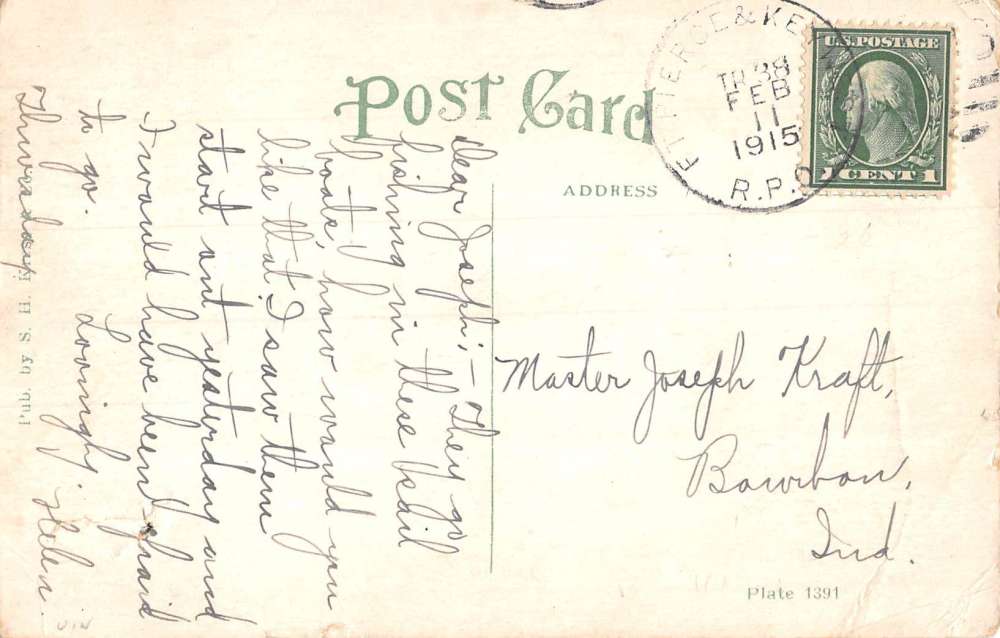 Post Card
ADDRESS
FT. PIERCE & KEY
TR 38
FEB
11
1915
R.P.O
U.S. POSTAGE
1 CENT 1
Dear Joseph; – They go
fishing in these sail
boats, how would you
like that. I saw them
start out yesterday and
I would have been afraid
to go. Lovingly. Helen.
Thursday
Master Joseph Kraft,
Bourbon,
Ind.
Pub. by S. H.
Plate 1391